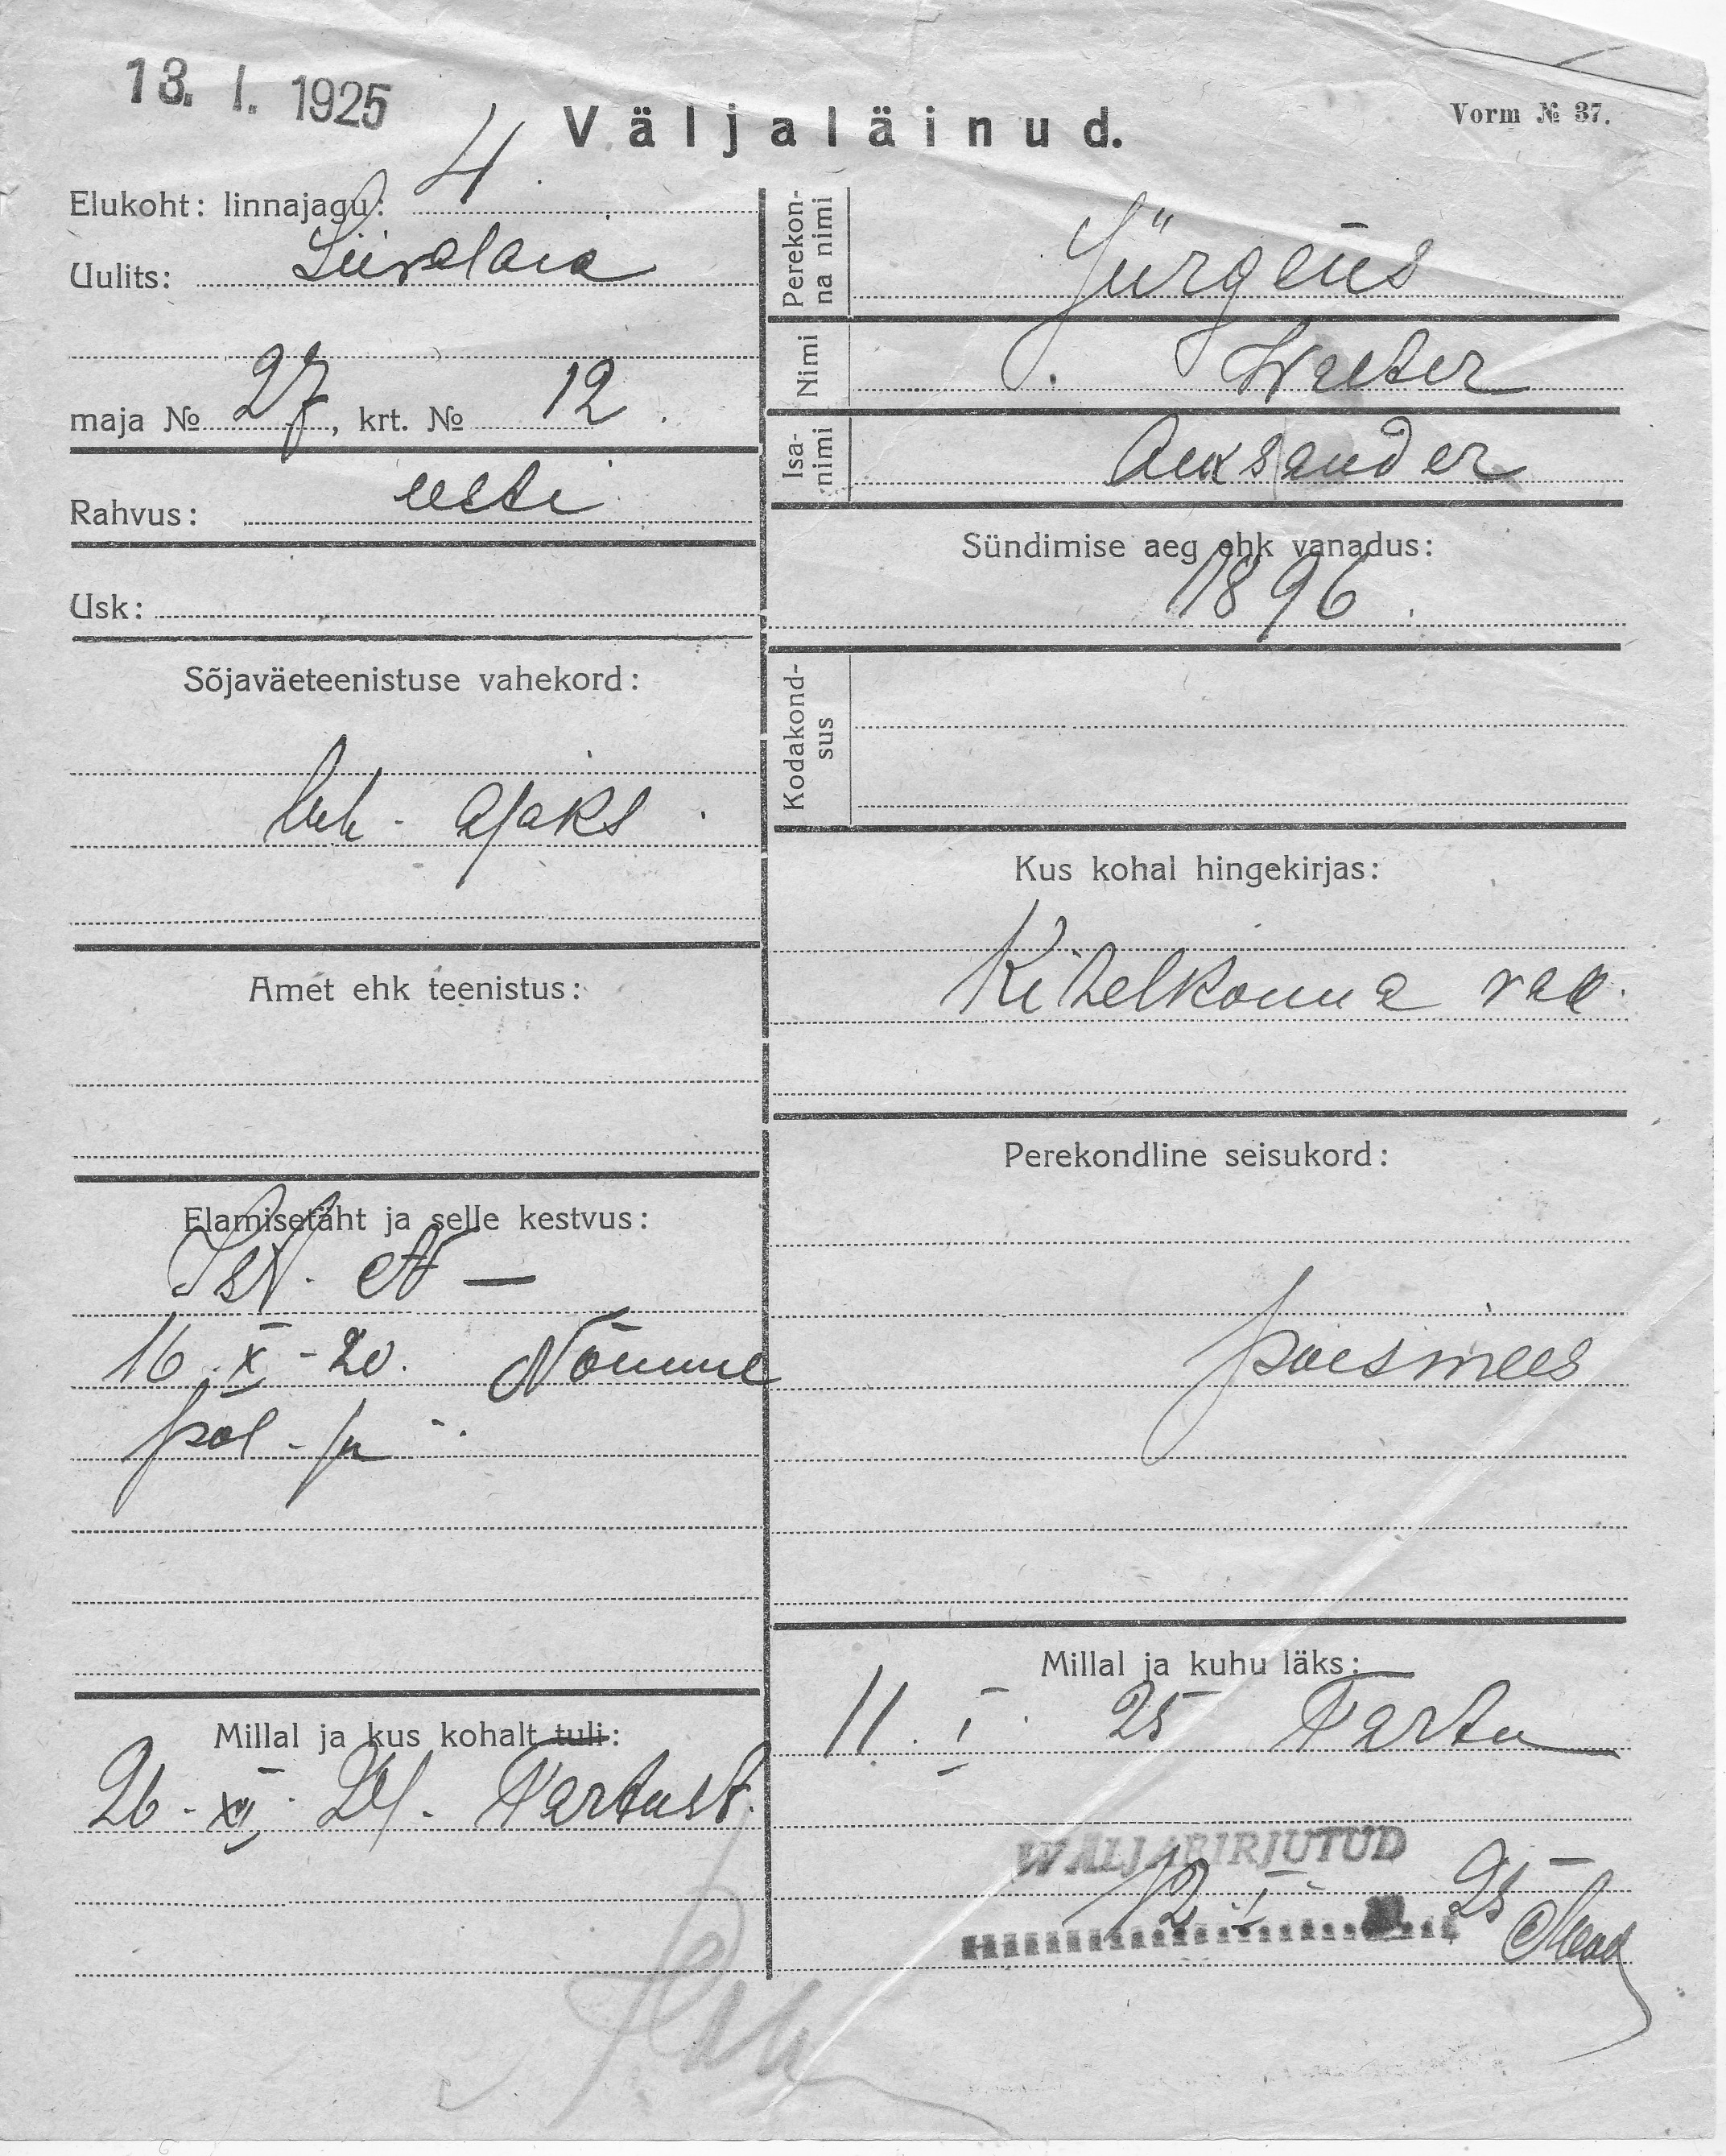 13. I. 1925
Väljaläinud.
Vorm № 37.
Elukoht: linnajagu: 4.
Uulits: Liivalaia
maja № 27, krt. № 12.
Rahvus: eesti
Usk:
Sõjaväeteenistuse vahekord:
ajaks
Amet ehk teenistus:
Elamisetäht ja selle kestvus:
Ist. №—
16. X - 20. Nõmme
pol-ja
Millal ja kus kohalt tuli:
26. XI. 24. Tartust.
Perekonna nimi
Jürgens
Nimi
Walter
Isanimi
Aleksander
Sündimise aeg ehk vanadus:
1896.
Kodakondsus
Kus kohal hingekirjas:
Kihelkonna val.
Perekondline seisukord:
poismees
Millal ja kuhu läks:
11. I. 25 Tartu
WÄLJAKIRJUTUD
12. I. 25